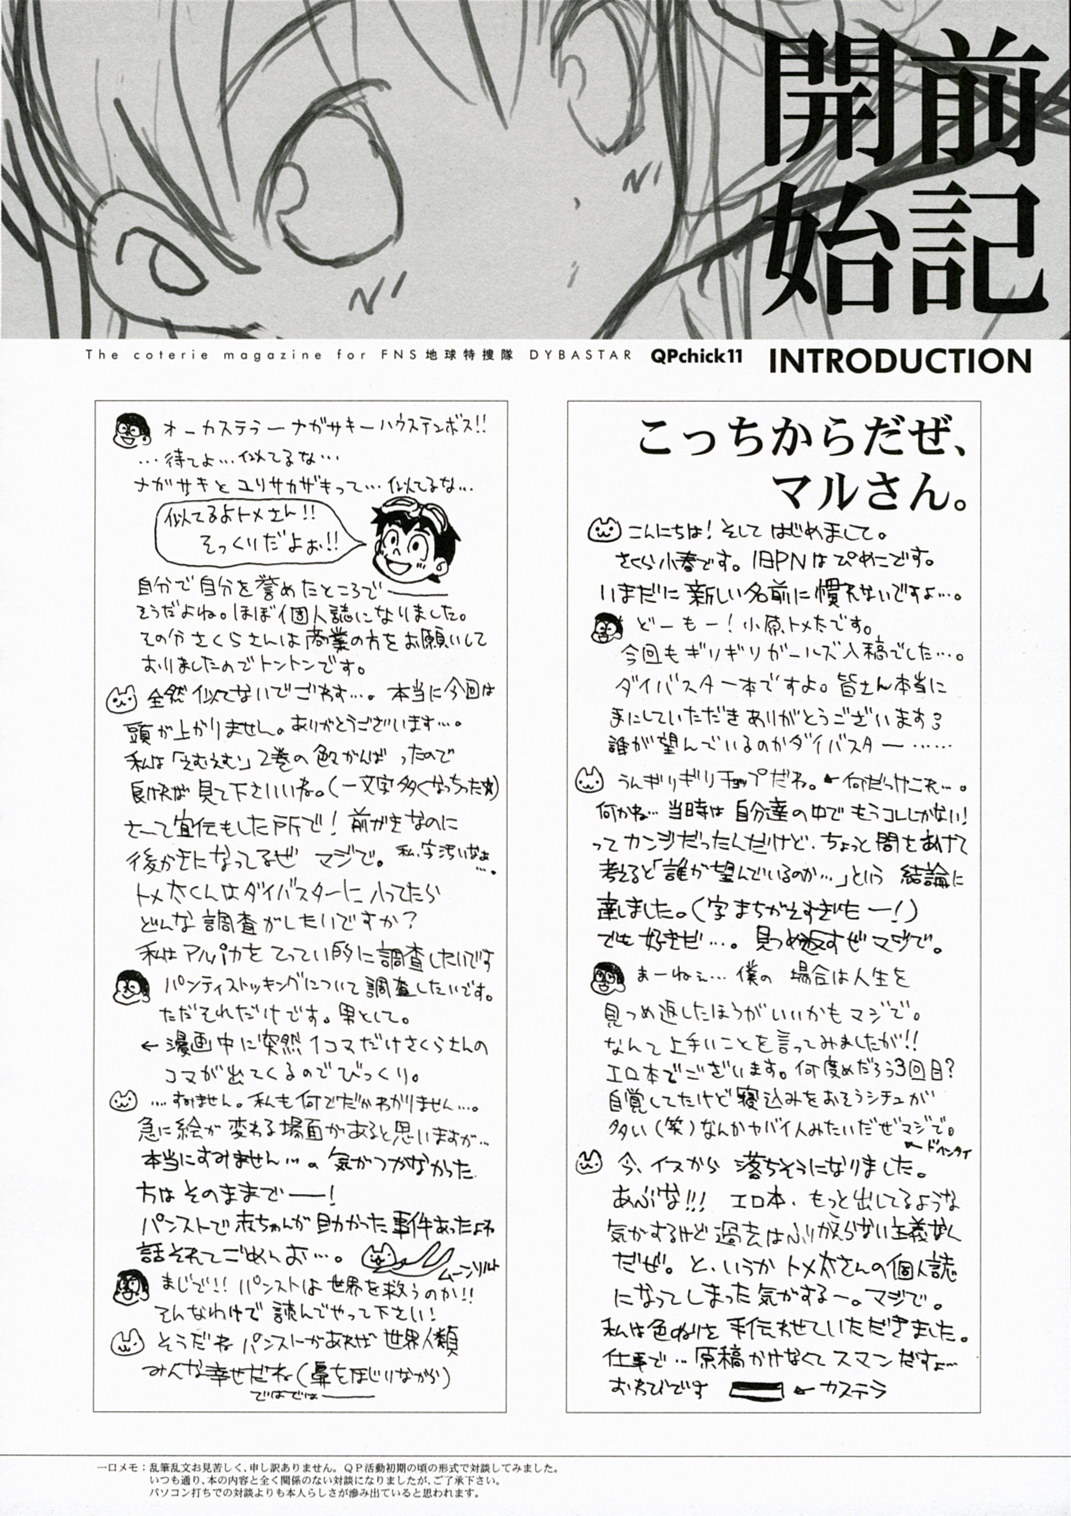 前記
開始
The coterie magazine for FNS地球特捜隊 DYBASTAR QPchick11 INTRODUCTION
こっちからだぜ、
マルさん。
こんにちは！そして はじめまして。
さくら小春です。旧PNはぴめこです。
いまだに新しい名前に慣れないですよ…。
どーもー！小原トメ太です。
今回もギリギリガールズ入稿でした…。
ダイバスター本ですよ。皆さん本当に
手にしていただきありがとうございます
誰が望んでいるのかダイバスター……
うんギリギリチョップだね。←何だっけこれ…。
何かね…当時は自分達の中でもうコレしかない！
ってカンジだったんだけど、ちょっと間をあけて
考えると「誰が望んでいるのか…」という 結論に
達しました。（字まちがえすぎたー！）
でも好きだ…。見つめ返すぜマジで。
まーねぇ…僕の 場合は人生を
見つめ返したほうがいいかもマジで。
なんて上手いことを言ってみましたが！！
エロ本でございます。何度めだろう3回目？
自覚してたけど寝込みをおそうシチュが
多い（笑）なんかヤバイ人みたいだぜマジで。
←ドヘンタイ
今、イスから 落ちそうになりました。
あぶな！！！ エロ本、もっと出してるような
気がするけど過去はふりかえらない主義なん
だぜ。と、いうかトメ太さんの個人誌
になってしまった気がするー。マジで。
私は色ぬりを手伝わせていただきました。
仕事で…原稿かけなくてスマンだすよ…
おわびです ←カステラ
オーカステラーナガサキーハウステンボス！！
…待てよ…似てるな…
ナガサキとユリサカザキって…似てるな…
似てるよトメさん！！
そっくりだよぉ！！
自分で自分を誉めたところで――
そうだよね。ほぼ個人誌になりました。
その分さくらさんは商業の方をお願いして
おりましたのでトントンです。
全然似てないでごわす…。本当に今回は
頭が上がりません。ありがとうございます…。
私は「えむえむ」2巻の色々がんばったので
良ければ見て下さいいね。（一文字多くなっちった）
さーて宣伝もした所で！前がきなのに
後がきになってるぜ マジで。私、字汚いなぁ…。
トメ太くんはダイバスターに入ってたら
どんな調査がしたいですか？
私はアルパカをてってい的に調査したいです
パンティストッキングについて調査したいです。
ただそれだけです。男として。
←漫画中に突然1コマだけさくらさんの
コマが出てくるのでびっくり。
…すみません。私も何でだかわかりません…。
急に絵が変わる場面があると思いますが…
本当にすみません…。気がつかなかった
方はそのままで――！
パンストで赤ちゃんが助かった事件あったよね
話それてごめんお…。
ムーンソルト
まじで！！！パンストは世界を救うのか！！
そんなわけで読んでやって下さい！
そうだね パンストがあれば世界人類
みんな幸せだね（鼻をほじりながら）
ではでは――
一口メモ：乱筆乱文お見苦しく、申し訳ありません。QP活動初期の頃の形式で対談してみました。
いつも通り、本の内容と全く関係のない対談になりましたが、ご了承下さい。
パソコン打ちでの対談よりも本人らしさが滲み出ていると思われます。